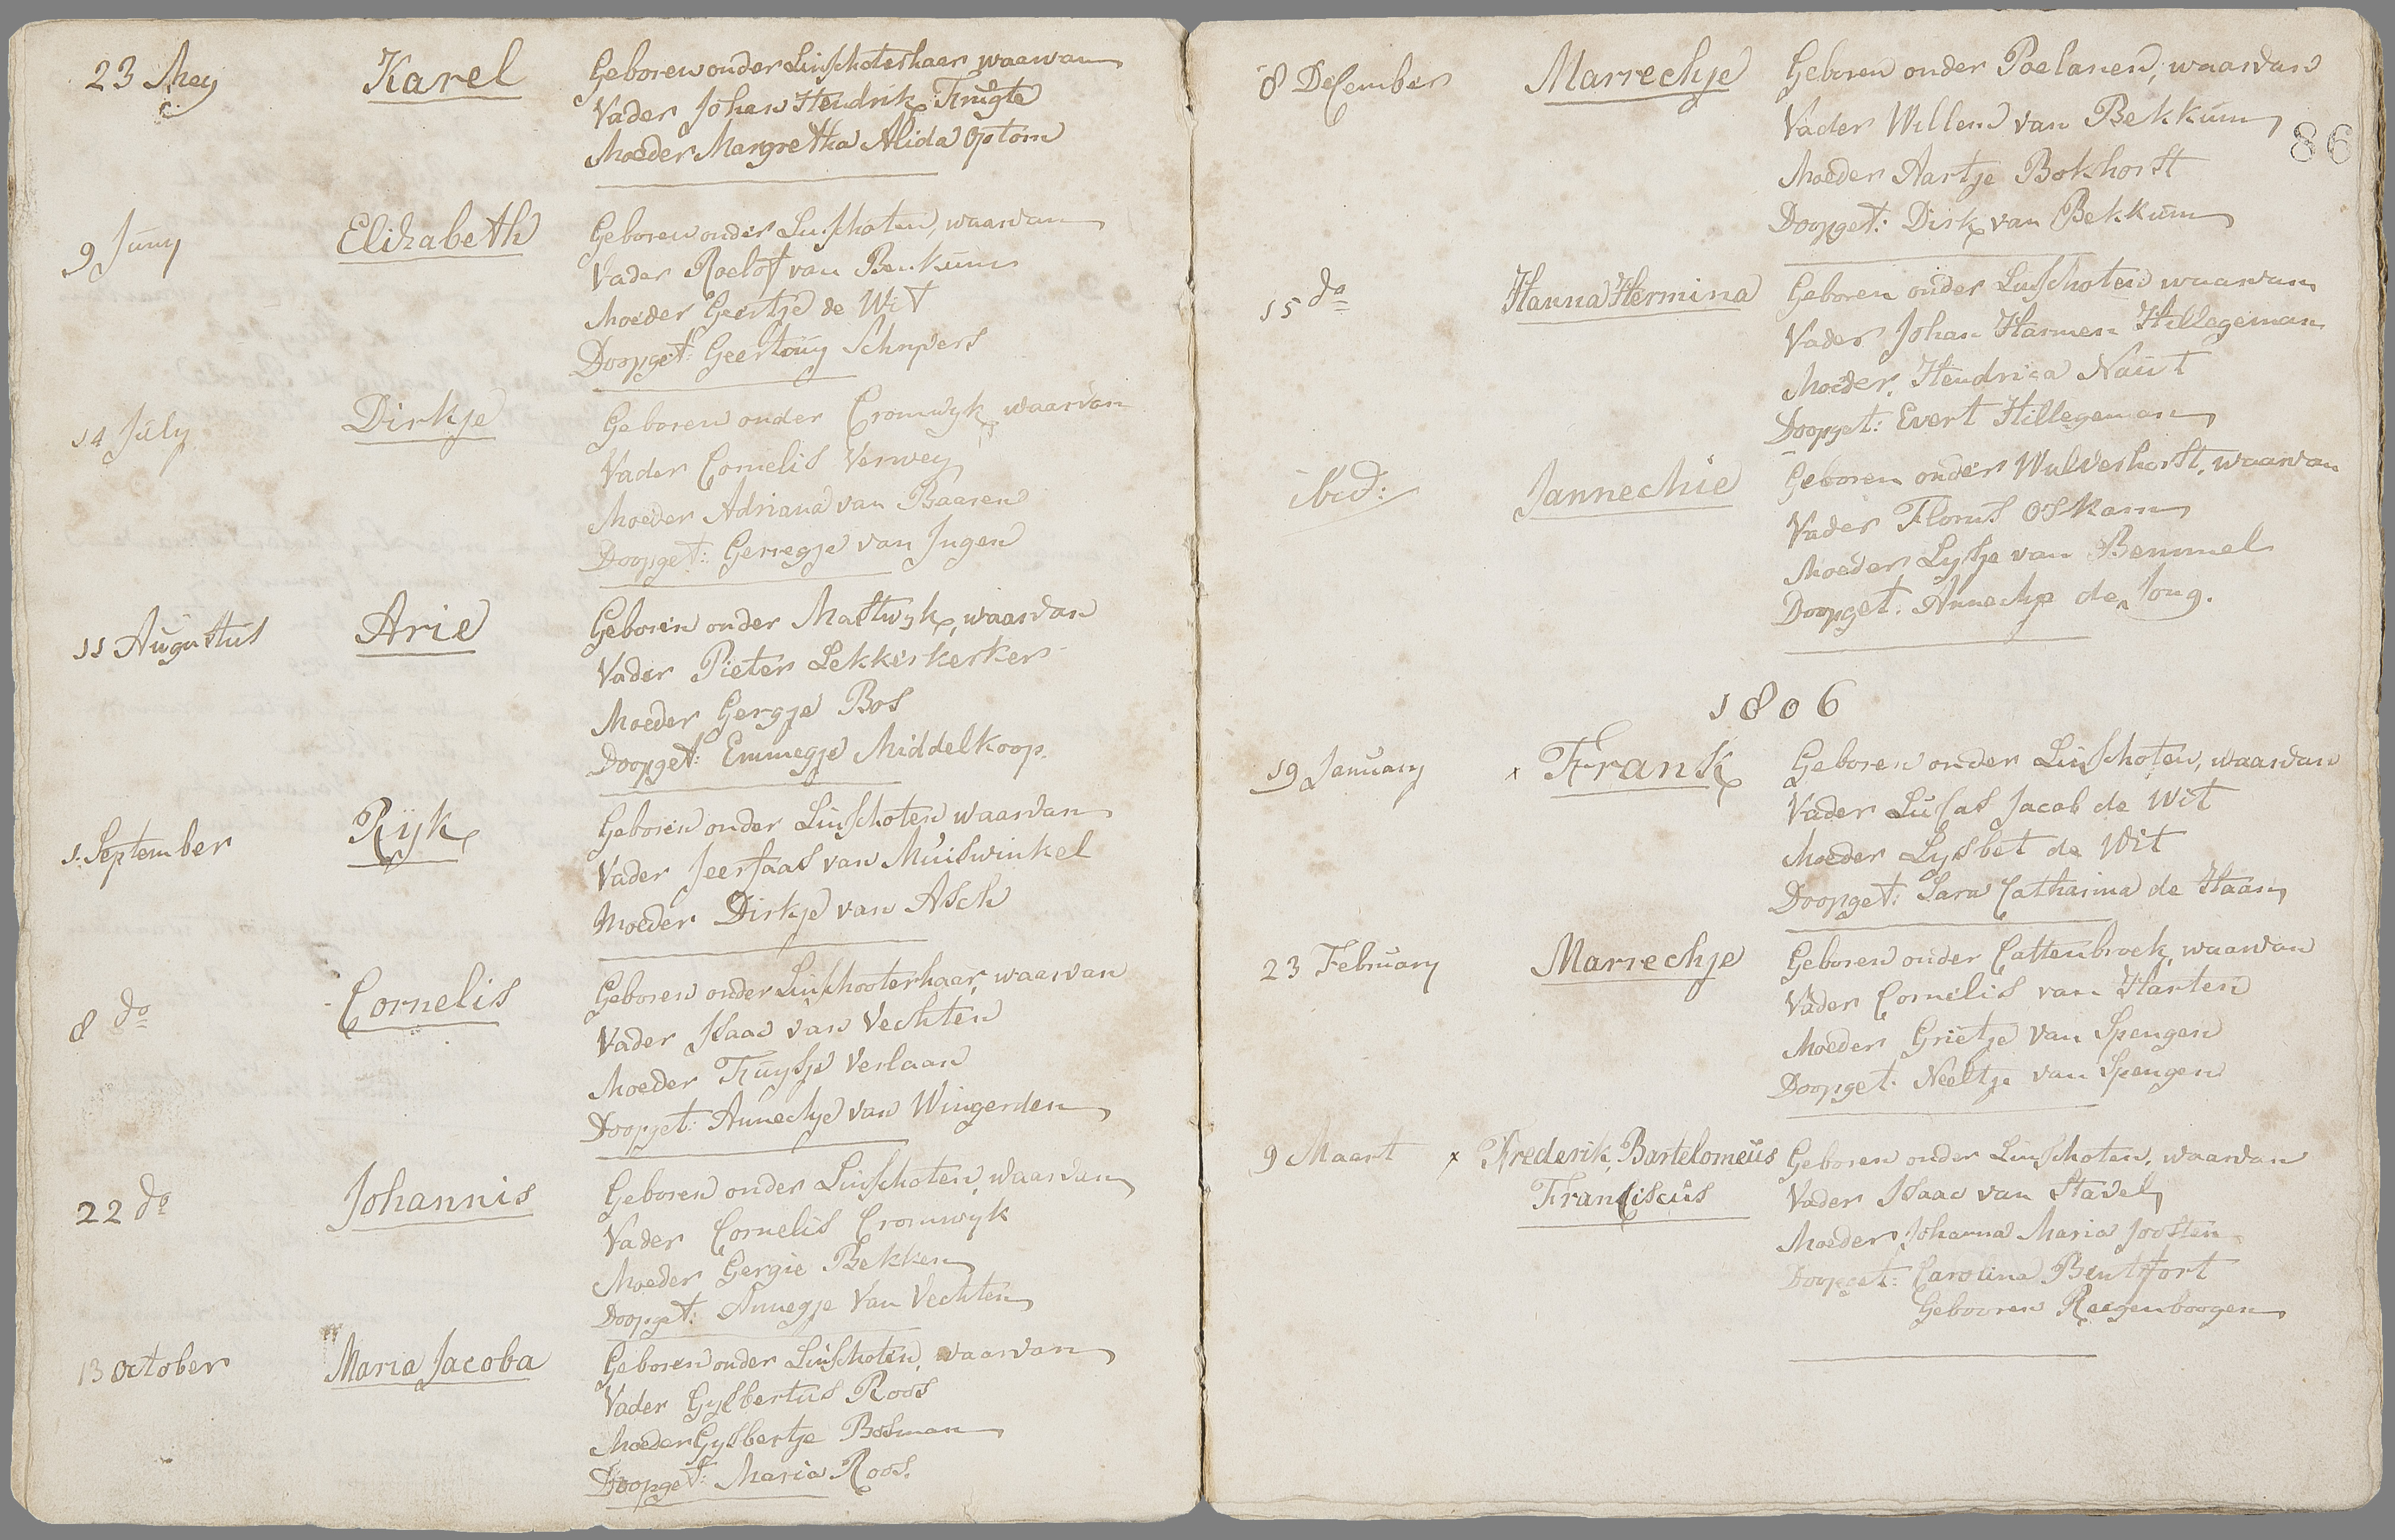 23 Mey
Karel
Geboren onder Linschoterhaar waarvan
Vader Johan Hendrik Frugte
Moeder Margretha Alida Optom
9 Juny
Elizabeth
Geboren onder Linschoten, waarvan
Vader Roelof van Benkum
Moeder Geertje de Wit
Doopget: Geertruy Schrivers
14 July
Dirkje
Geboren onder Cromwyk waarvan
Vader Cornelis Verwey
Moeder Adriana van Baaren
Doopget: Gerregje van Ingen
11 Augustus
Arie
Geboren onder Mastwyk, waarvan
Vader Pieter Lekkerkerker
Moeder Gergje Bos
Doopget: Emmegje Middelkoop.
1. September
Ryk
Geboren onder Linschoten waarvan
Vader Jeersaas van Muiswinkel
Moeder Dirkje van Asch
8 do
Cornelis
Geboren onder Linschooterhaar, waarvan
Vader Isaac van Vechten
Moeder Fruysje Verlaan
Doopget: Annechje van Wingerden
22 do
Johannis
Geboren onder Linschoten, waarvan
Vader Cornelis Cromwyk
Moeder Gergie Bekker
Doopget: Annegje Van Vechten
13 October
Maria Jacoba
Geboren onder Linschoten, waarvan
Vader Gysbertus Roos
Moeder Gysbertje Bosman
Doopget: Maria Roos.
8 December
Marrechje
Geboren onder Poelanen, waarvan
Vader Willem van Bekkum
86
Moeder Aartje Bokhorst
Doopget: Dirk van Bekkum
15 do
Hanna Hermina
Geboren onder Linschoten waarvan
Vader Johan Harmen Hillegeman
Moeder, Hendrica Naut
Doopget: Evert Hillegeman
ibid:
Jannechie
Geboren onder Wulverhorst, waarvan
Vader Florus Oskam
Moeder Lysje van Bemmel
Doopget: Annechje de Jong.
1806
19 January
x Frank
Geboren onder Linschoten, waarvan
Vader Lucas Jacob de Wit
Moeder Lysbet de Wit
Doopget: Sara Catharina de Haan
23 February
Marrechje
Geboren onder Cattenbroek, waarvan
Vader Cornelis van Harten
Moeder Grietje van Spengen
Doopget: Neeltje van Spengen
9 Maart
x Frederik, Bartelomeus
Franciscus
Geboren onder Linschoten, waarvan
Vader Isaac van Stavel
Moeder Johanna Maria Joosten
Doopget: Carolina Bentfort
Gebooren Reegenboogen